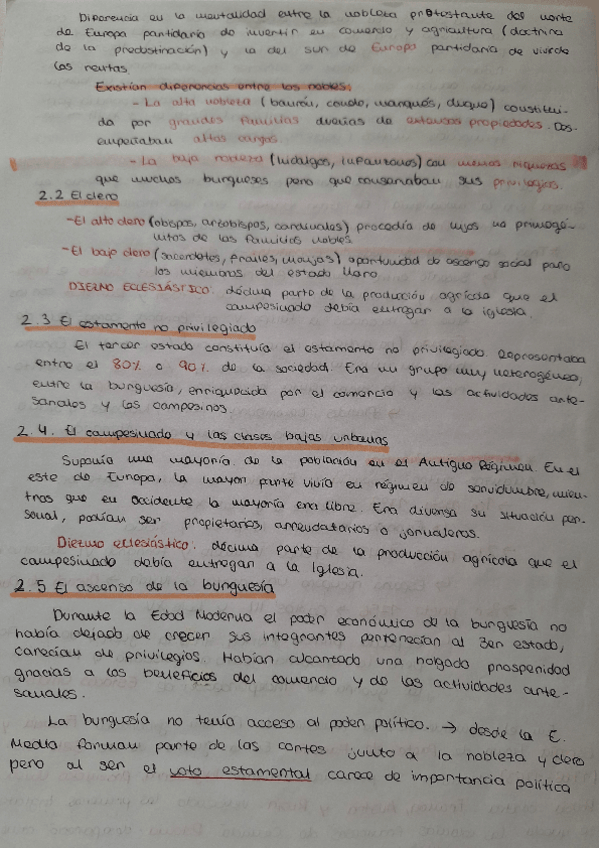 Diferencia en la mentalidad entre la nobleza protestante del norte
de Europa partidaria de invertir en comercio y agricultura (doctrina
de la predestinación) y la del sur de Europa partidaria de vivir de
las rentas.
Existían diferencias entre los nobles:
- La alta nobleza (barón, conde, marqués, duque) constitui-
da por grandes familias dueñas de extensas propiedades. Des-
empeñaban altos cargos.
- La baja nobleza (hidalgos, infanzones) con menos riquezas
que muchos burgueses pero que conservaban sus privilegios.
2.2 El clero
- El alto clero (obispos, arzobispos, cardenales) procedía de hijos no primogé-
nitos de las familias nobles
- El bajo clero (sacerdotes, frailes, monjas) oportunidad de ascenso social para
los miembros del estado llano
DIEZMO ECLESIÁSTICO: décima parte de la producción agrícola que el
campesinado debía entregar a la iglesia.
2.3 El estamento no privilegiado
El tercer estado constituía el estamento no privilegiado. Representaba
entre el 80% o 90% de la sociedad. Era un grupo muy heterogéneo,
entre la burguesía, enriquecida por el comercio y las actividades arte-
sanales y los campesinos.
2.4. El campesinado y las clases bajas urbanas
Suponía una mayoría de la población en el Antiguo Régimen. En el
este de Europa, la mayor parte vivía en régimen de servidumbre, mien-
tras que en occidente la mayoría era libre. Era diversa su situación per-
sonal, podían ser propietarios, arrendatarios o jornaleros.
Diezmo eclesiástico: décima parte de la producción agrícola que el
campesinado debía entregar a la Iglesia.
2.5 El ascenso de la burguesía
Durante la Edad Moderna el poder económico de la burguesía no
había dejado de crecer. Sus integrantes pertenecían al 3er estado,
carecían de privilegios. Habían alcantado una holgada prosperidad
gracias a los beneficios del comercio y de las actividades arte-
sanales.
La burguesía no tenía acceso al poder político. → desde la E.
Media forman parte de las cortes junto a la nobleza y clero
pero al ser el voto estamental carece de importancia política